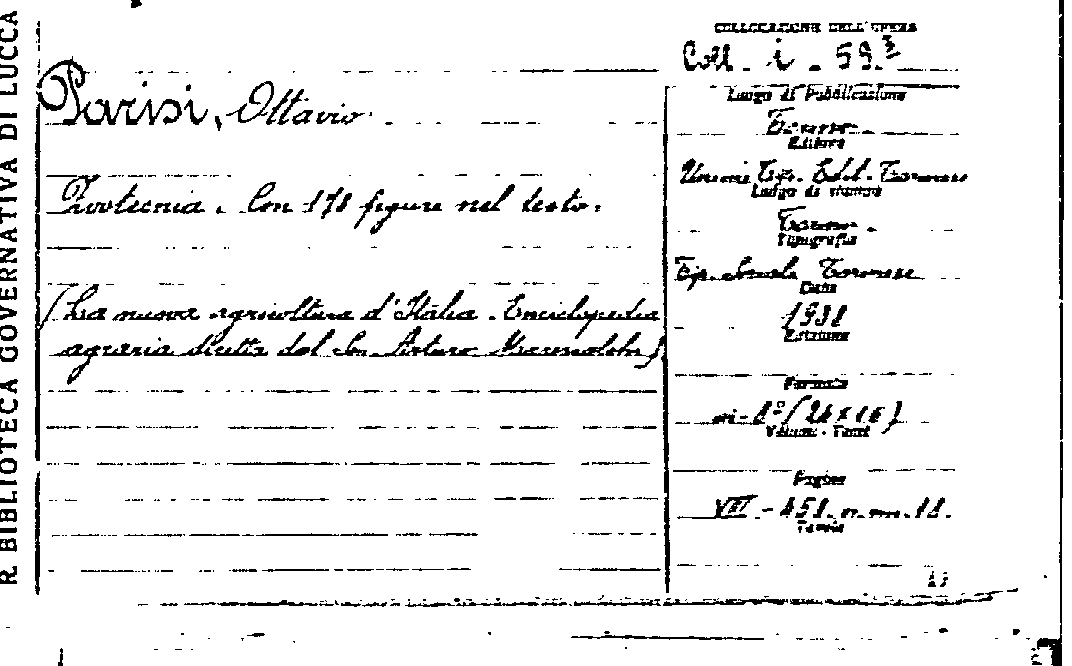 R. BIBLIOTECA GOVERNATIVA DI LUCCA
Parisi, Ottavio
Zootecnia. Con 178 figure nel testo.
(La nuova agricoltura d'Italia. Enciclopedia
agraria diretta dal Sen. Arturo Marescalchi)
COLLOCAZIONE DELL'OPERA
Coll. i - 59.3
Luogo di Pubblicazione
Torino
Editore
Unione Tip. Edit. Torinese
Luogo di stampa
Torino
Tipografia
Tip. Sociale Torinese
Data
Edizione
Formato
in-8° (24x16)
Volumi - Tomi
Pagine
VIII - 451.
Tavole